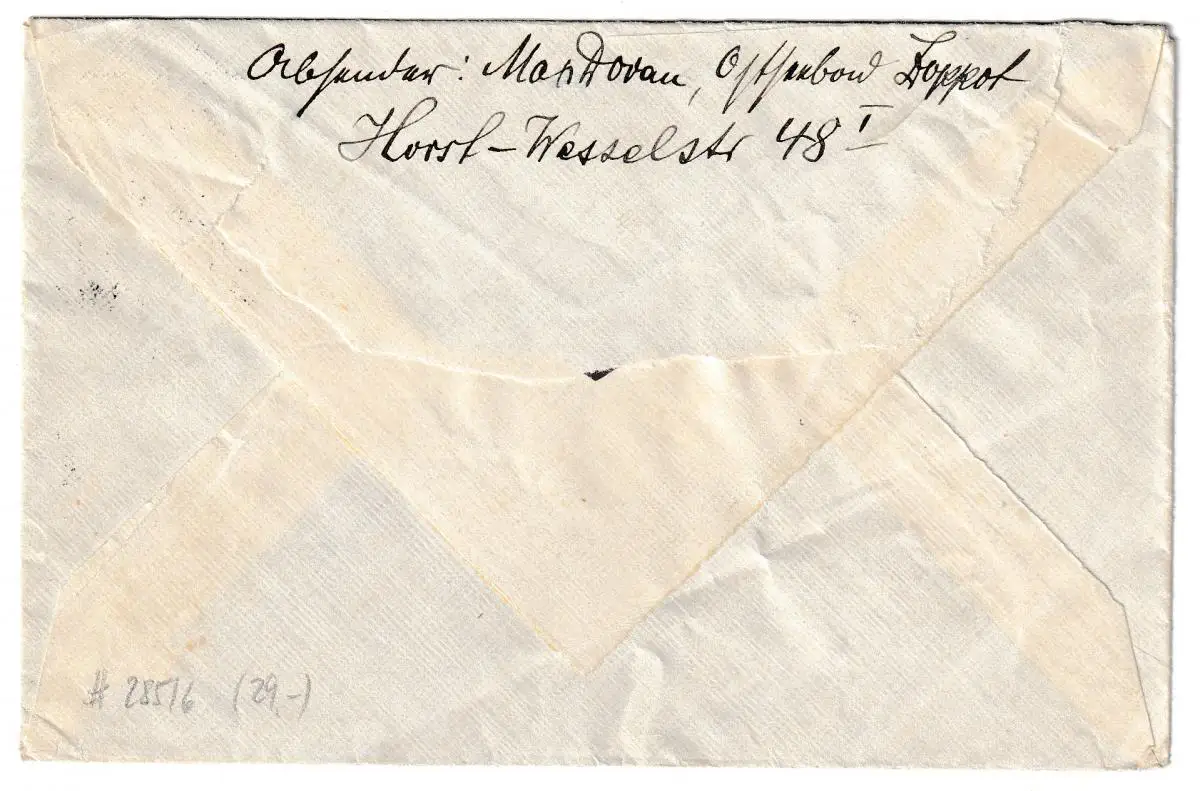 Absender: Max Dovan, Ostseebad Zoppot
Horst-Wesselstr 48 I
# 28516 (29,-)